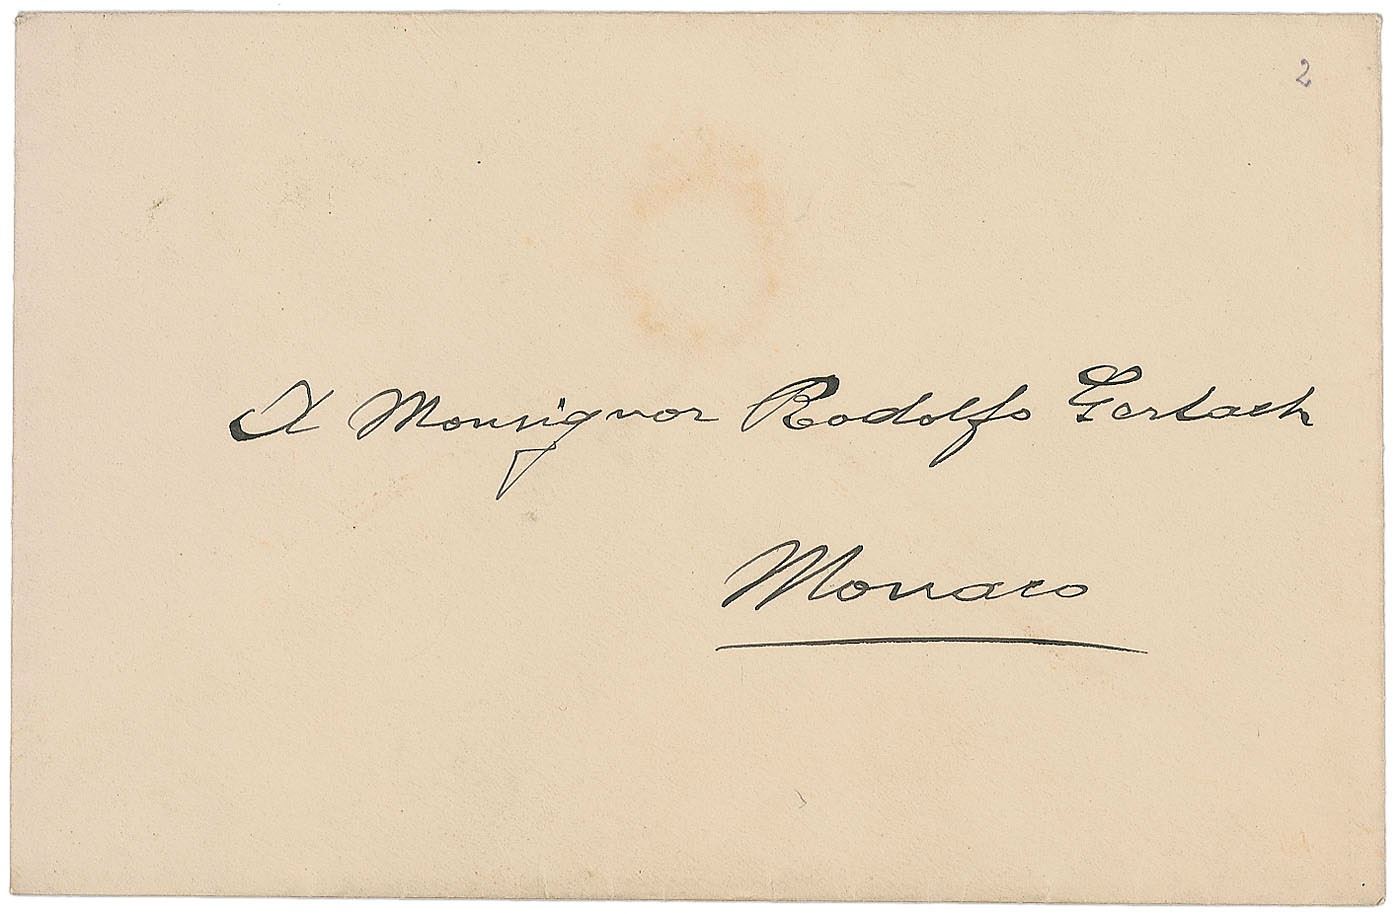 2
A Monsignor Rodolfo Gerlach
Monaco